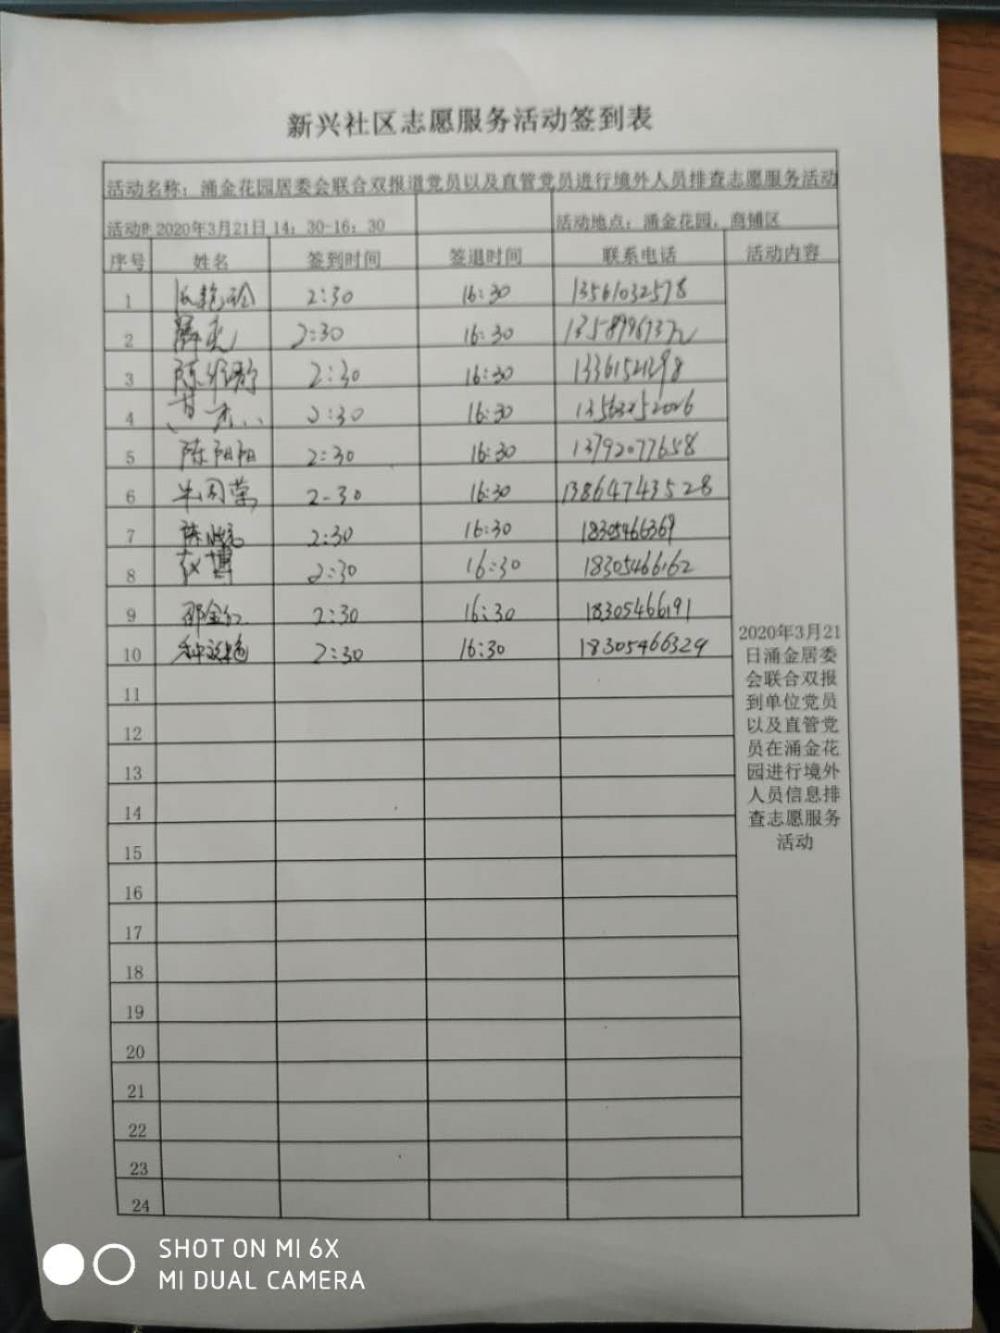 新兴社区志愿服务活动签到表
活动名称：涌金花园居委会联合双报道党员以及直管党员进行境外人员排查志愿服务活动
活动时 2020年3月21日 14：30-16：30 活动地点：涌金花园，商铺区
序号 姓名 签到时间 签退时间 联系电话 活动内容
1 2:30 16:30 13561032578
2 2:30 16:30
3 2:30 16:30 13361521298
4 2:30 16:30
5 陈阳阳 2:30 16:30 13792077658
6 牛同荣 2-30 16:30 13864743528
7 2:30 16:30 18305466369
8 赵博 2:30 16:30 18305466162
9 邵金红 2:30 16:30 18305466191
10 2:30 16:30 18305466329
11
12
13
14
15
16
17
18
19
20
21
22
23
24
2020年3月21
日涌金居委
会联合双报
到单位党员
以及直管党
员在涌金花
园进行境外
人员信息排
查志愿服务
活动
SHOT ON MI 6X
MI DUAL CAMERA